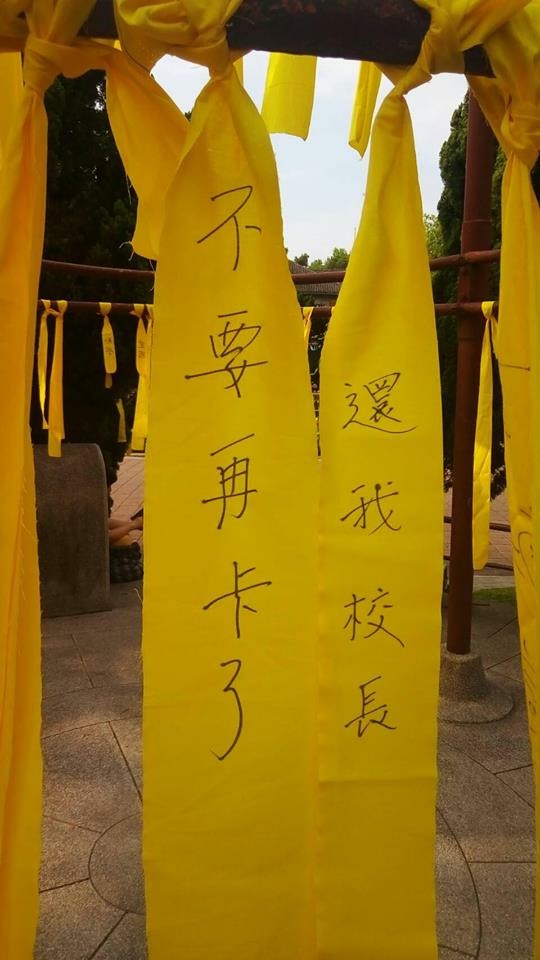 不要再卡了
還我校長